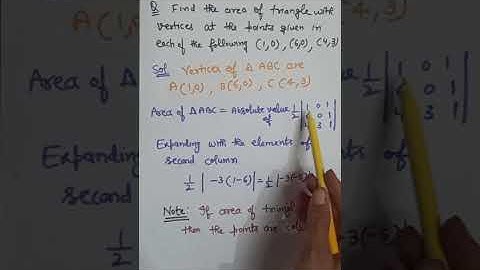 Q Find the area of triangle with
vertices at the points given in
each of the following (1,0), (6,0), (4,3)
Sol Vertices of Δ ABC are
A(1,0), B(6,0), C(4,3)
Area of ΔABC = Absolute value of 1/2 | 1 0 1
0 1
3 1 |
Expanding with the elements of
second column
1/2 | -3(1-6)| = 1/2 |-3(-5)|
Note: If area of triangle
then the points are
Area of
1/2 | 1 0 1
0 1
3 1 |
Expanding
of
1/2
-3(-5)